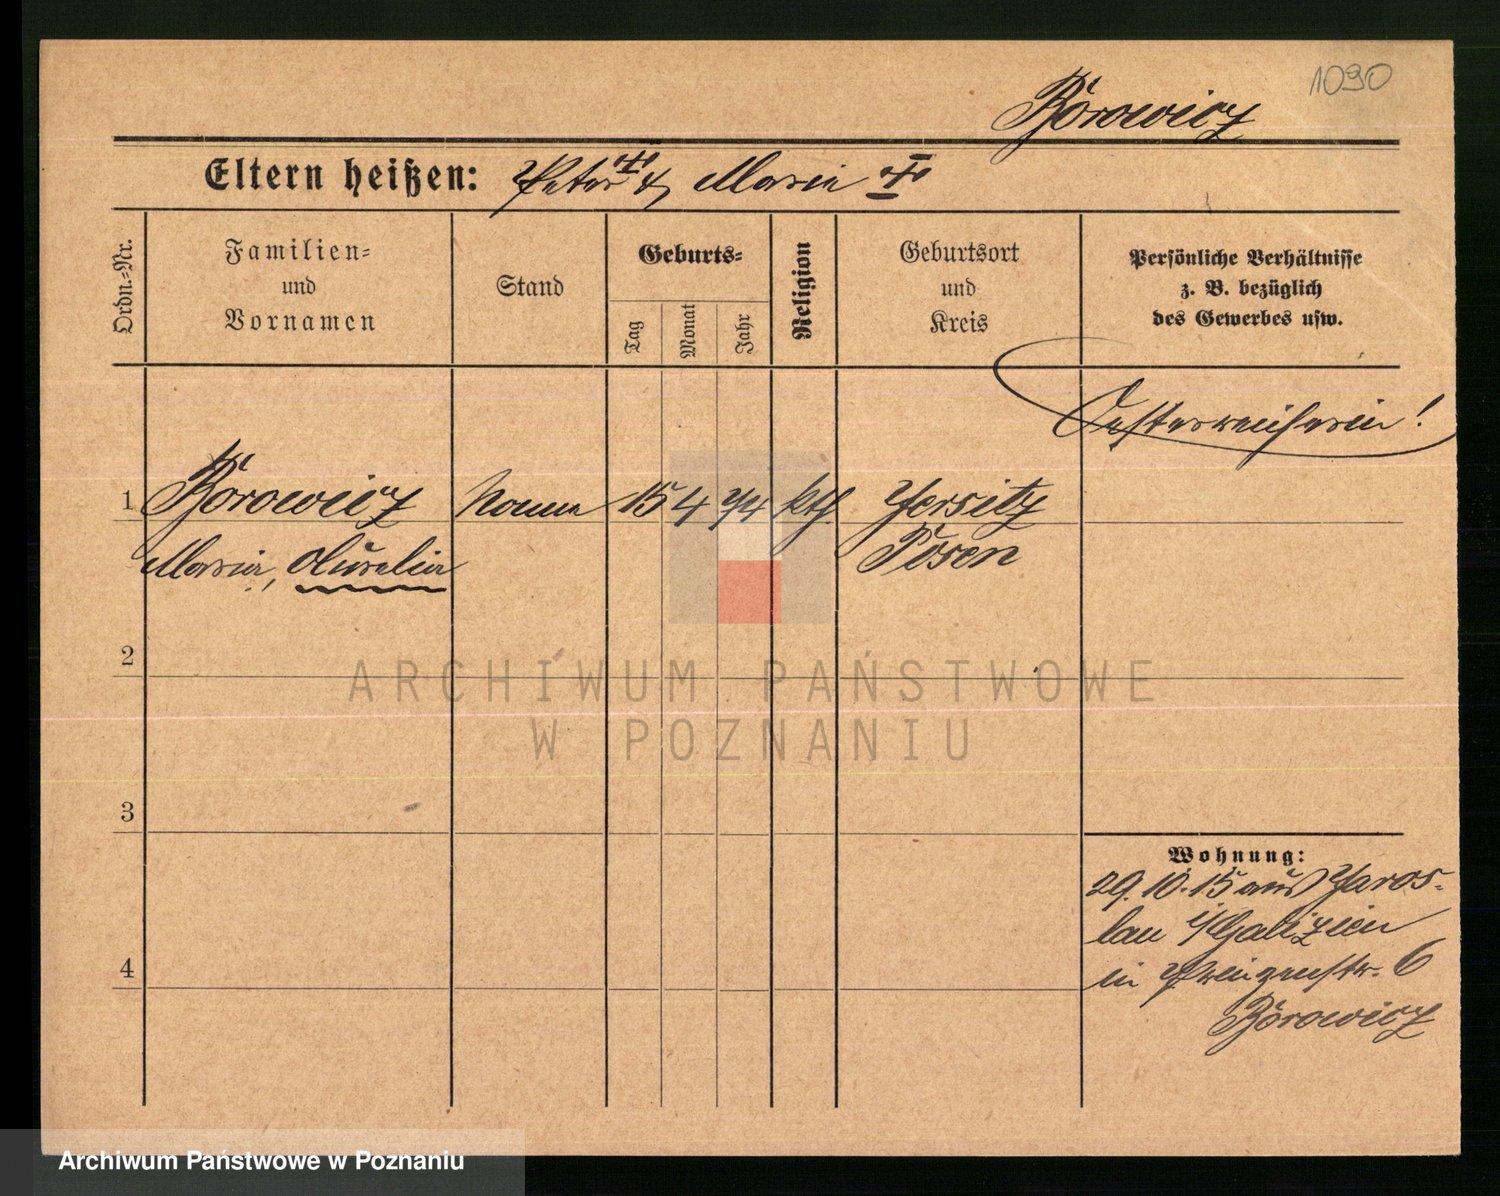 1090
Borowicz
Eltern heißen: Peter ☩ & Maria ☩
Ordn.-Nr.
Familien-
und
Vornamen
Stand
Geburts-
Tag
Monat
Jahr
Religion
Geburtsort
und
Kreis
Persönliche Verhältnisse
z. B. bezüglich
des Gewerbes usw.
Oesterreicherin!
1 Borowicz Nonne 15 4 74 kth Jersitz
Maria, Aurelia Posen
2
3
4
Wohnung:
29.10.15 aus Jaros-
lau i/Galizien
in Prinzenstr. 6
Borowicz
ARCHIWUM PAŃSTWOWE
W POZNANIU
Archiwum Państwowe w Poznaniu